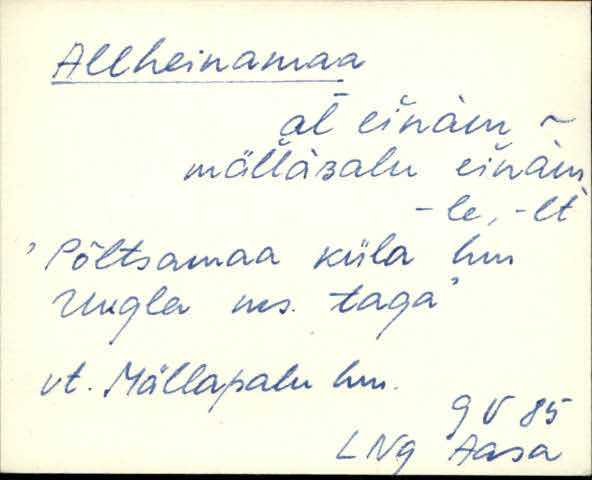 Allheinamaa
al̄ eińàm ~
mäĺĺàʙalu eińàm
-le, -lt
'Põltsamaa küla hm
Uugla ms. taga'
vt. Mällapalu hm.
9 V 85
LNg Aasa